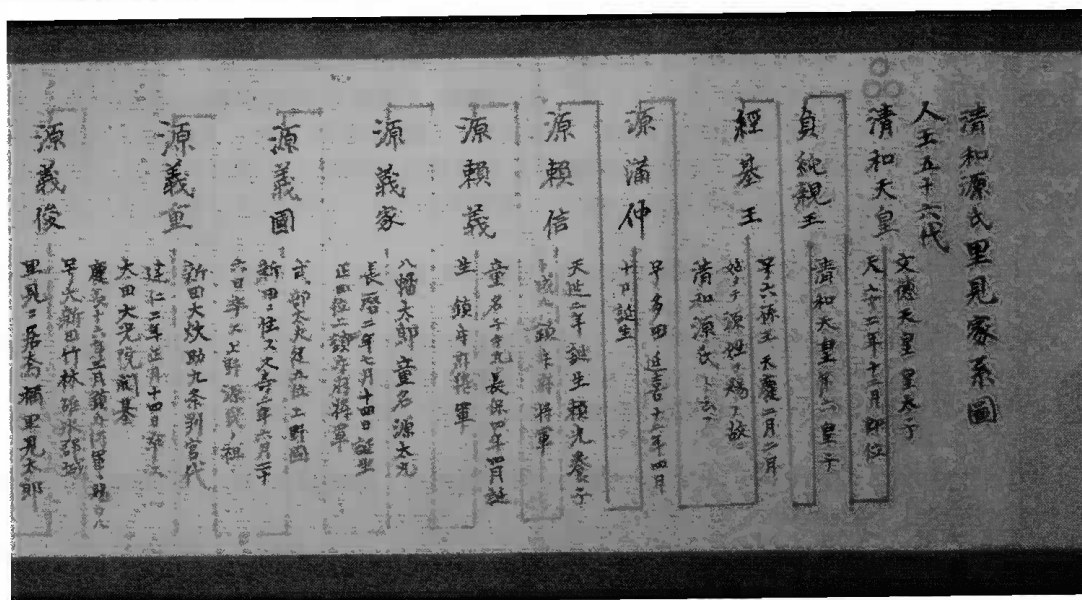 清和源氏里見家系圖
人王五十六代
清和天皇
文德天皇皇太子
天安二年十二月即位
貞純親王
清和天皇第六皇子
經基王
号六孫王 天慶二月二月
始メテ源姓ヲ賜フ故
清和源氏ト云フ
源滿仲
号多田 延喜十二年四月
十日誕生
源頼信
天延二年誕生頼光養子
鎮守府将軍
源頼義
童名千手丸長保四年四月誕
生 鎮守府将軍
源義家
八幡太郎 童名源太丸
長暦二年七月十四日誕生
正四位上鎮守府将軍
源義國
式部大夫従五位上野国
新田ニ住ス久寿二年六月二十
六日卒ス上野源氏ノ祖
源義重
新田大炊助九条判官代
建仁二年正月十四日卒
太田大光院開基
慶長十六年三月鎮守府将軍ヲ賜
号大新田竹林碓氷郡城
源義俊
里見ニ居為稱里見太郎